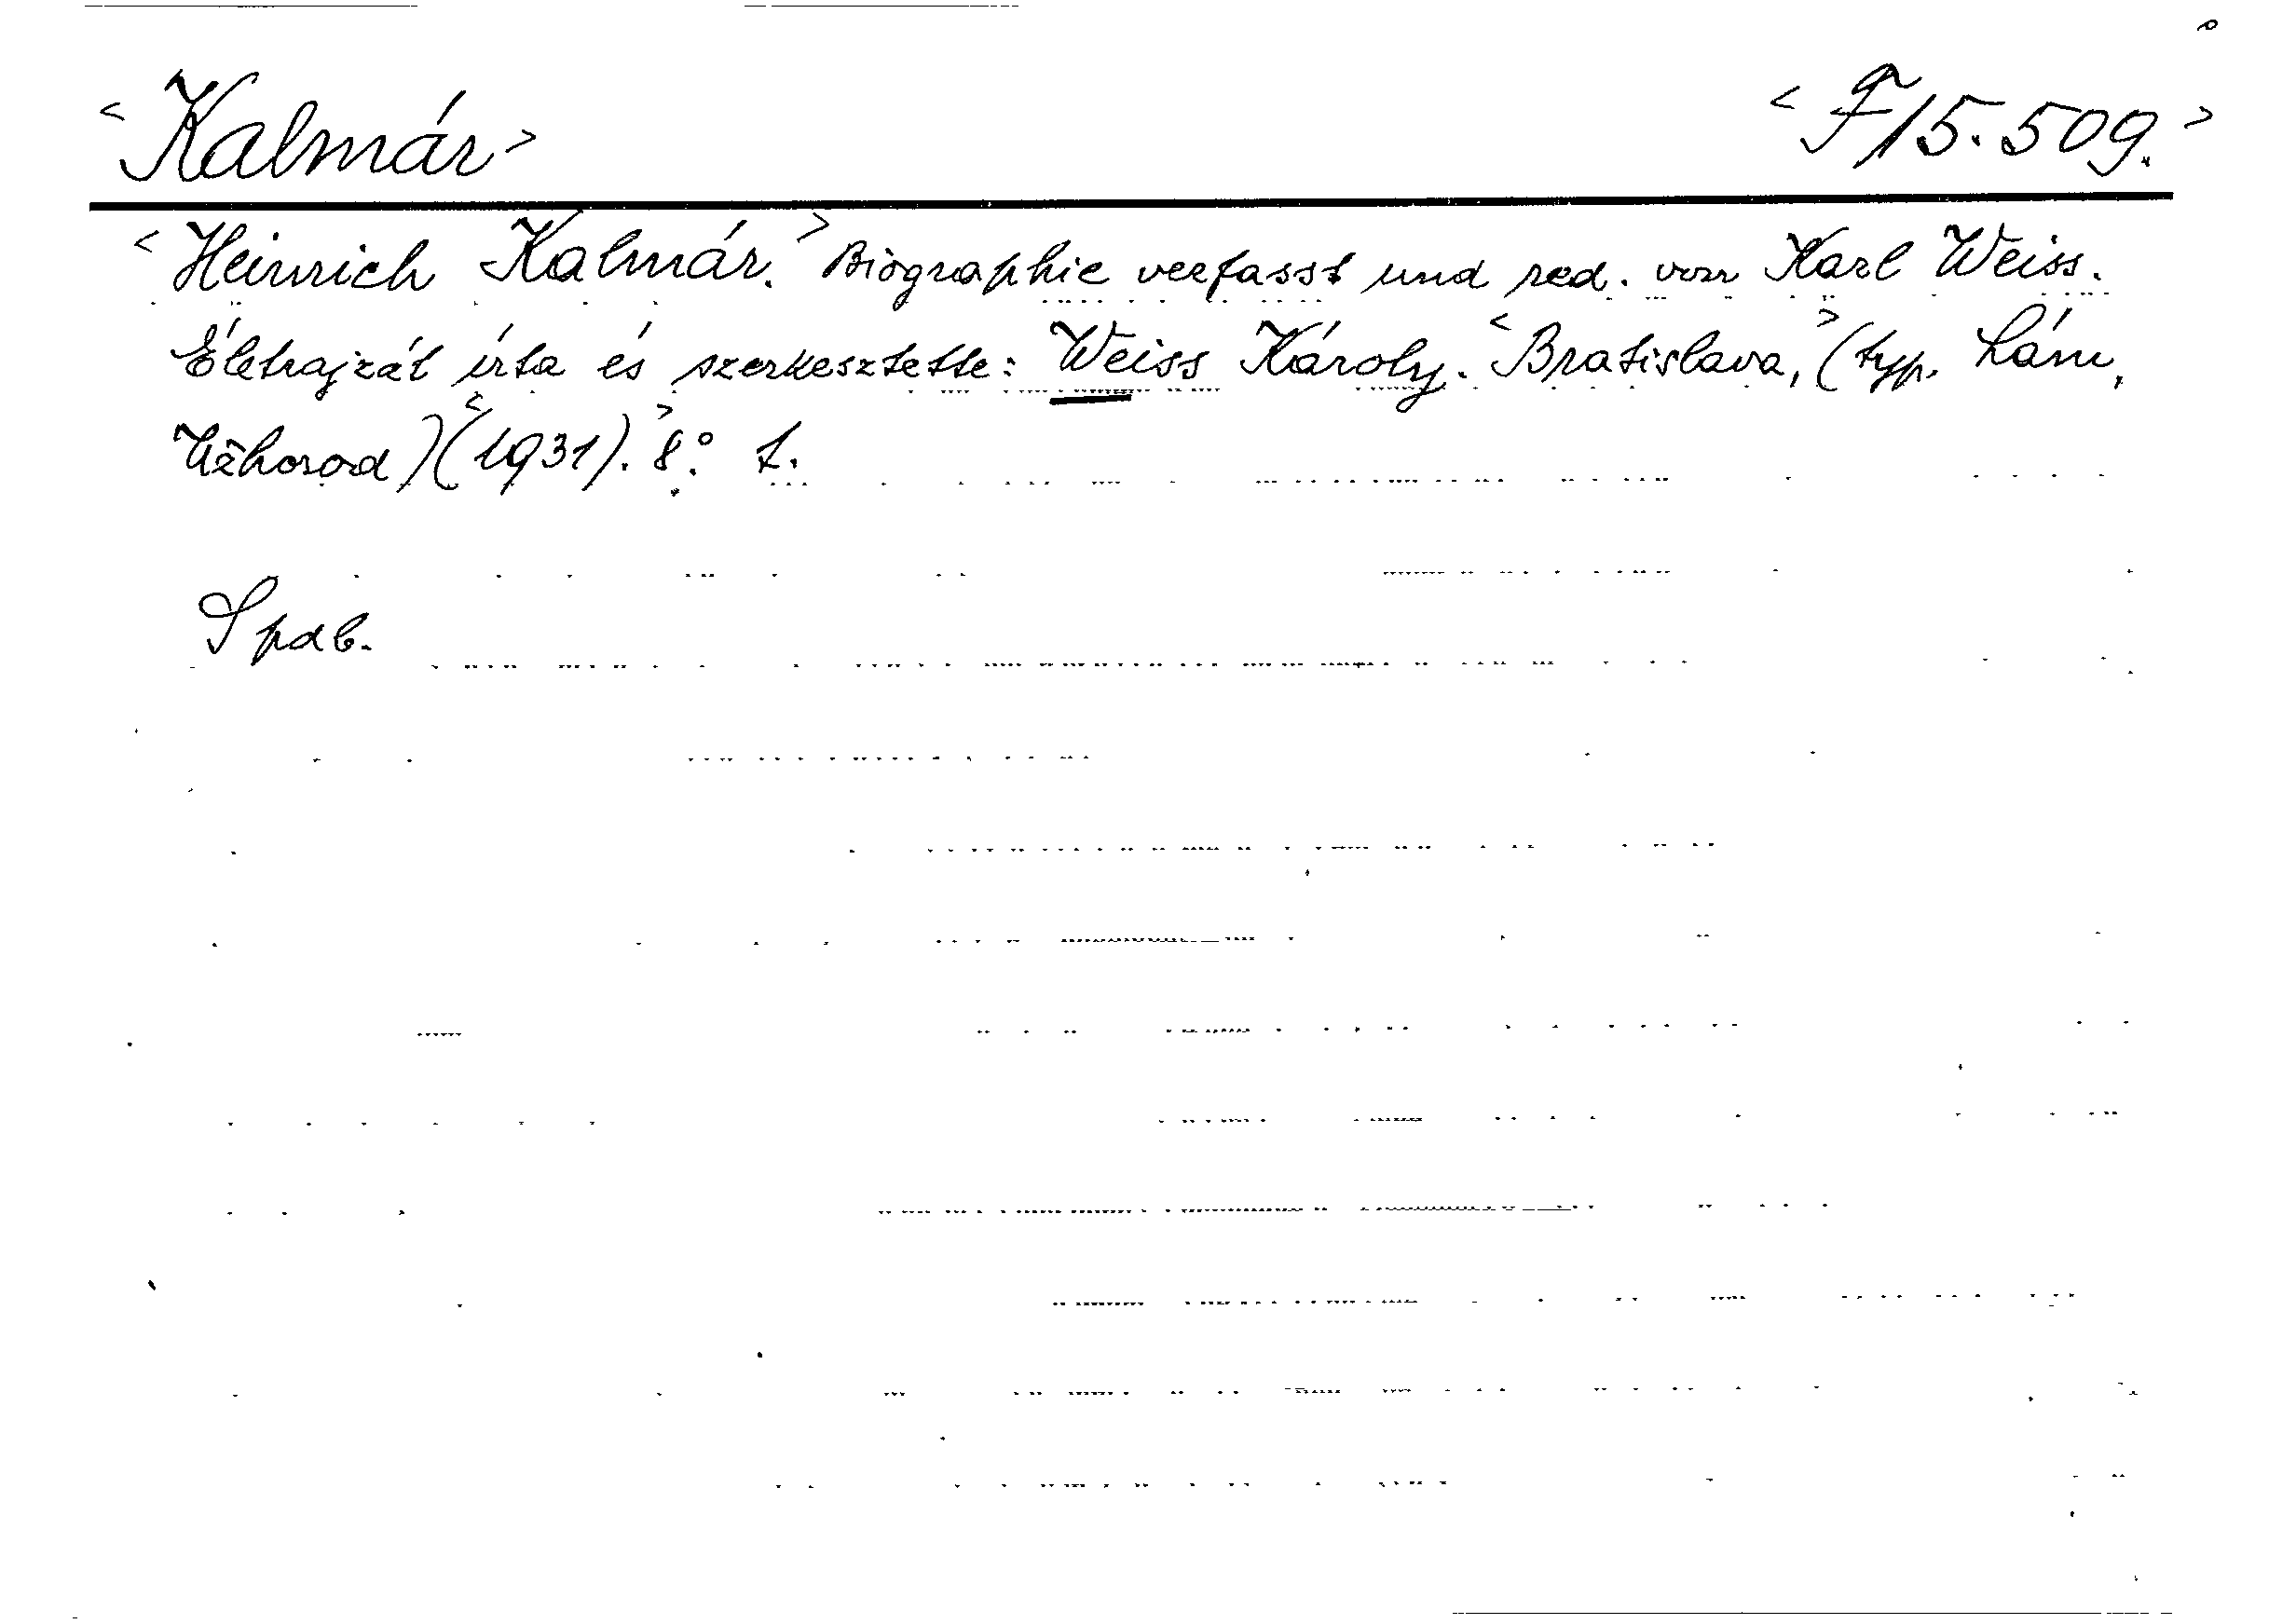 <Kalmár> <F15.509.>
<Heinrich Kalmár.> Biographie verfasst und red. von Karl Weiss.
Életrajzát írta és szerkesztette: Weiss Károly. <Bratislava,> (typ. Lám,
Užhorod) <(1931).> 8.° t.
Spdb.